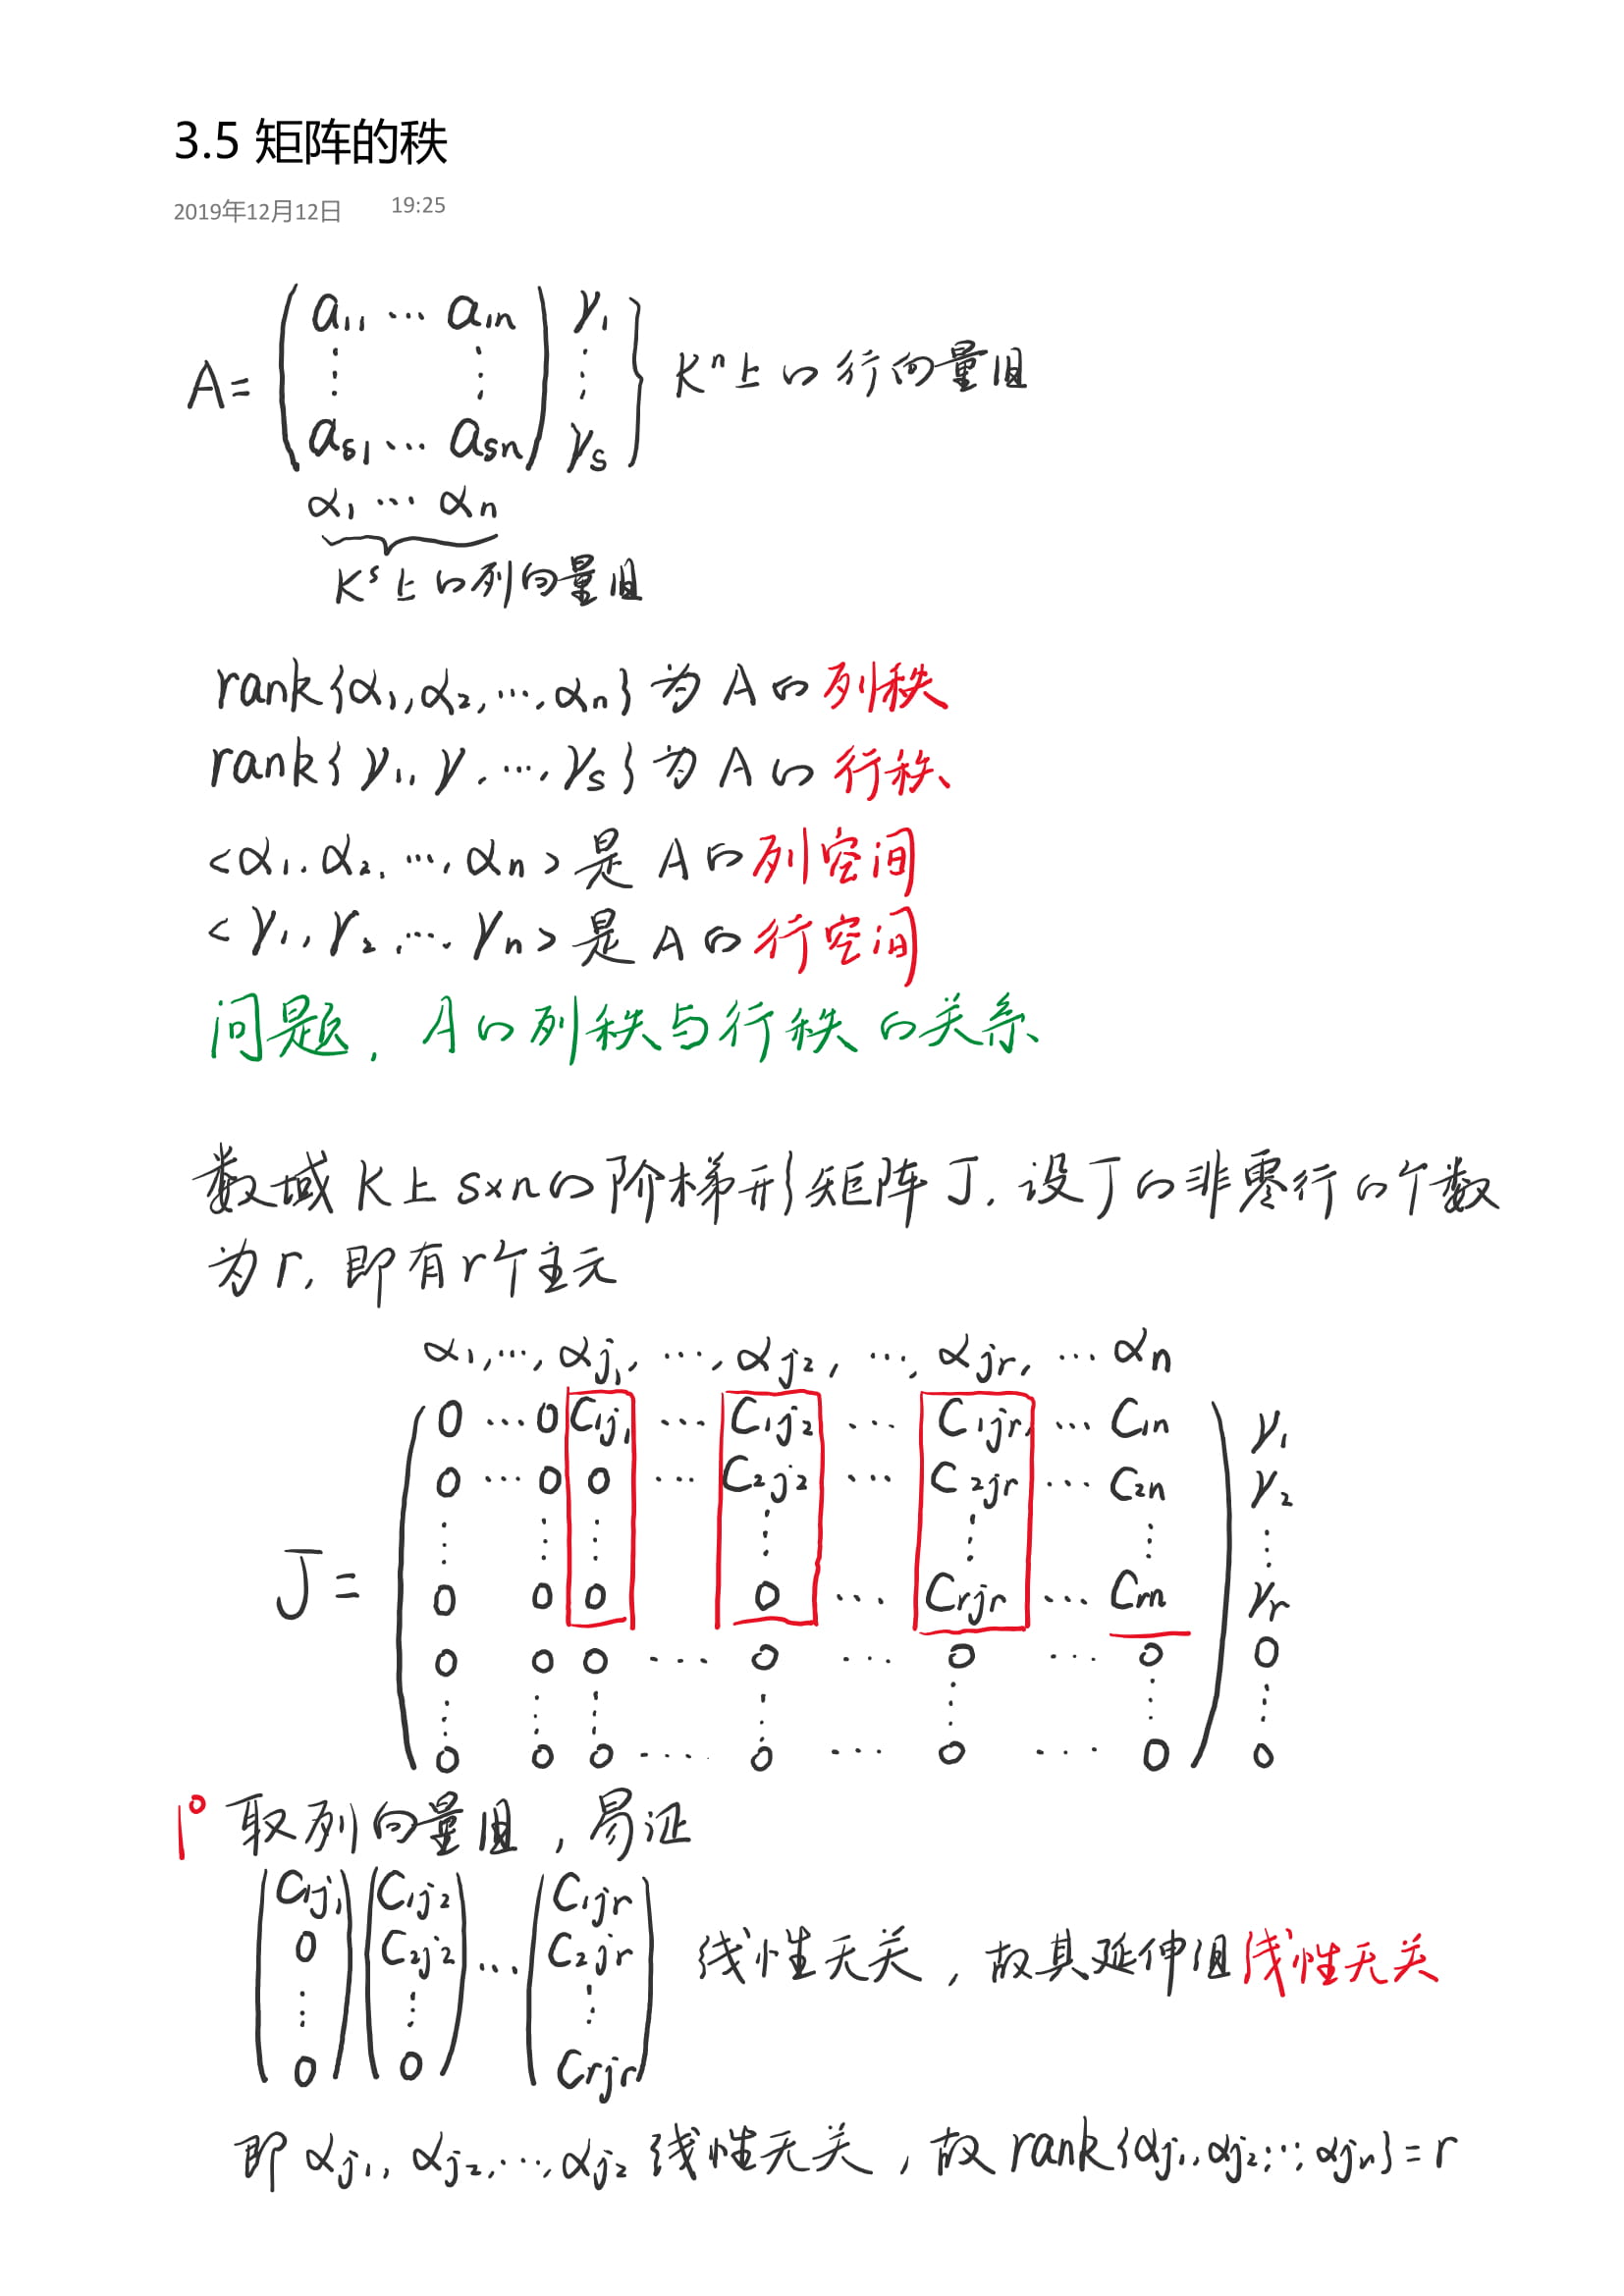 3.5 矩阵的秩
2019年12月12日 19:25
a₁₁ ⋯ a₁ₙ γ₁
A= ⋮ ⋮ ⋮ Kⁿ上的行向量组
aₛ₁ ⋯ aₛₙ γₛ
α₁ ⋯ αₙ
Kˢ上的列向量组
rank{α₁,α₂,⋯,αₙ}为A的列秩
rank{γ₁,γ,⋯,γₛ}为A的行秩
<α₁,α₂,⋯,αₙ>是A的列空间
<γ₁,γ₂,⋯,γₙ>是A的行空间
问题, A的列秩与行秩的关系
数域K上s×n的阶梯形矩阵J, 设J的非零行的个数
为r, 即有r个主元
α₁,⋯,αj₁,⋯,αj₂,⋯,αjr,⋯αn
0 ⋯ 0 C1j₁ ⋯ C1j₂ ⋯ C1jr ⋯ C1n γ₁
0 ⋯ 0 0 ⋯ C2j₂ ⋯ C2jr ⋯ C2n γ₂
⋮ ⋮ ⋮ ⋮ ⋮ ⋮ ⋮
J= 0 0 0 0 ⋯ Crjr ⋯ Crn γr
0 0 0 ⋯ 0 ⋯ 0 ⋯ 0 0
⋮ ⋮ ⋮ ⋮ ⋮ ⋮ ⋮
0 0 0 ⋯ 0 ⋯ 0 ⋯ 0 0
1° 取列向量组, 易证
C1j₁ C1j₂ C1jr
0 C2j₂ ⋯ C2jr 线性无关, 故其延伸组线性无关
⋮ ⋮ ⋮
0 0 Crjr
即αj₁, αj₂,⋯,αj₂线性无关, 故rank{αj₁,αj₂,⋯,αjn}=r